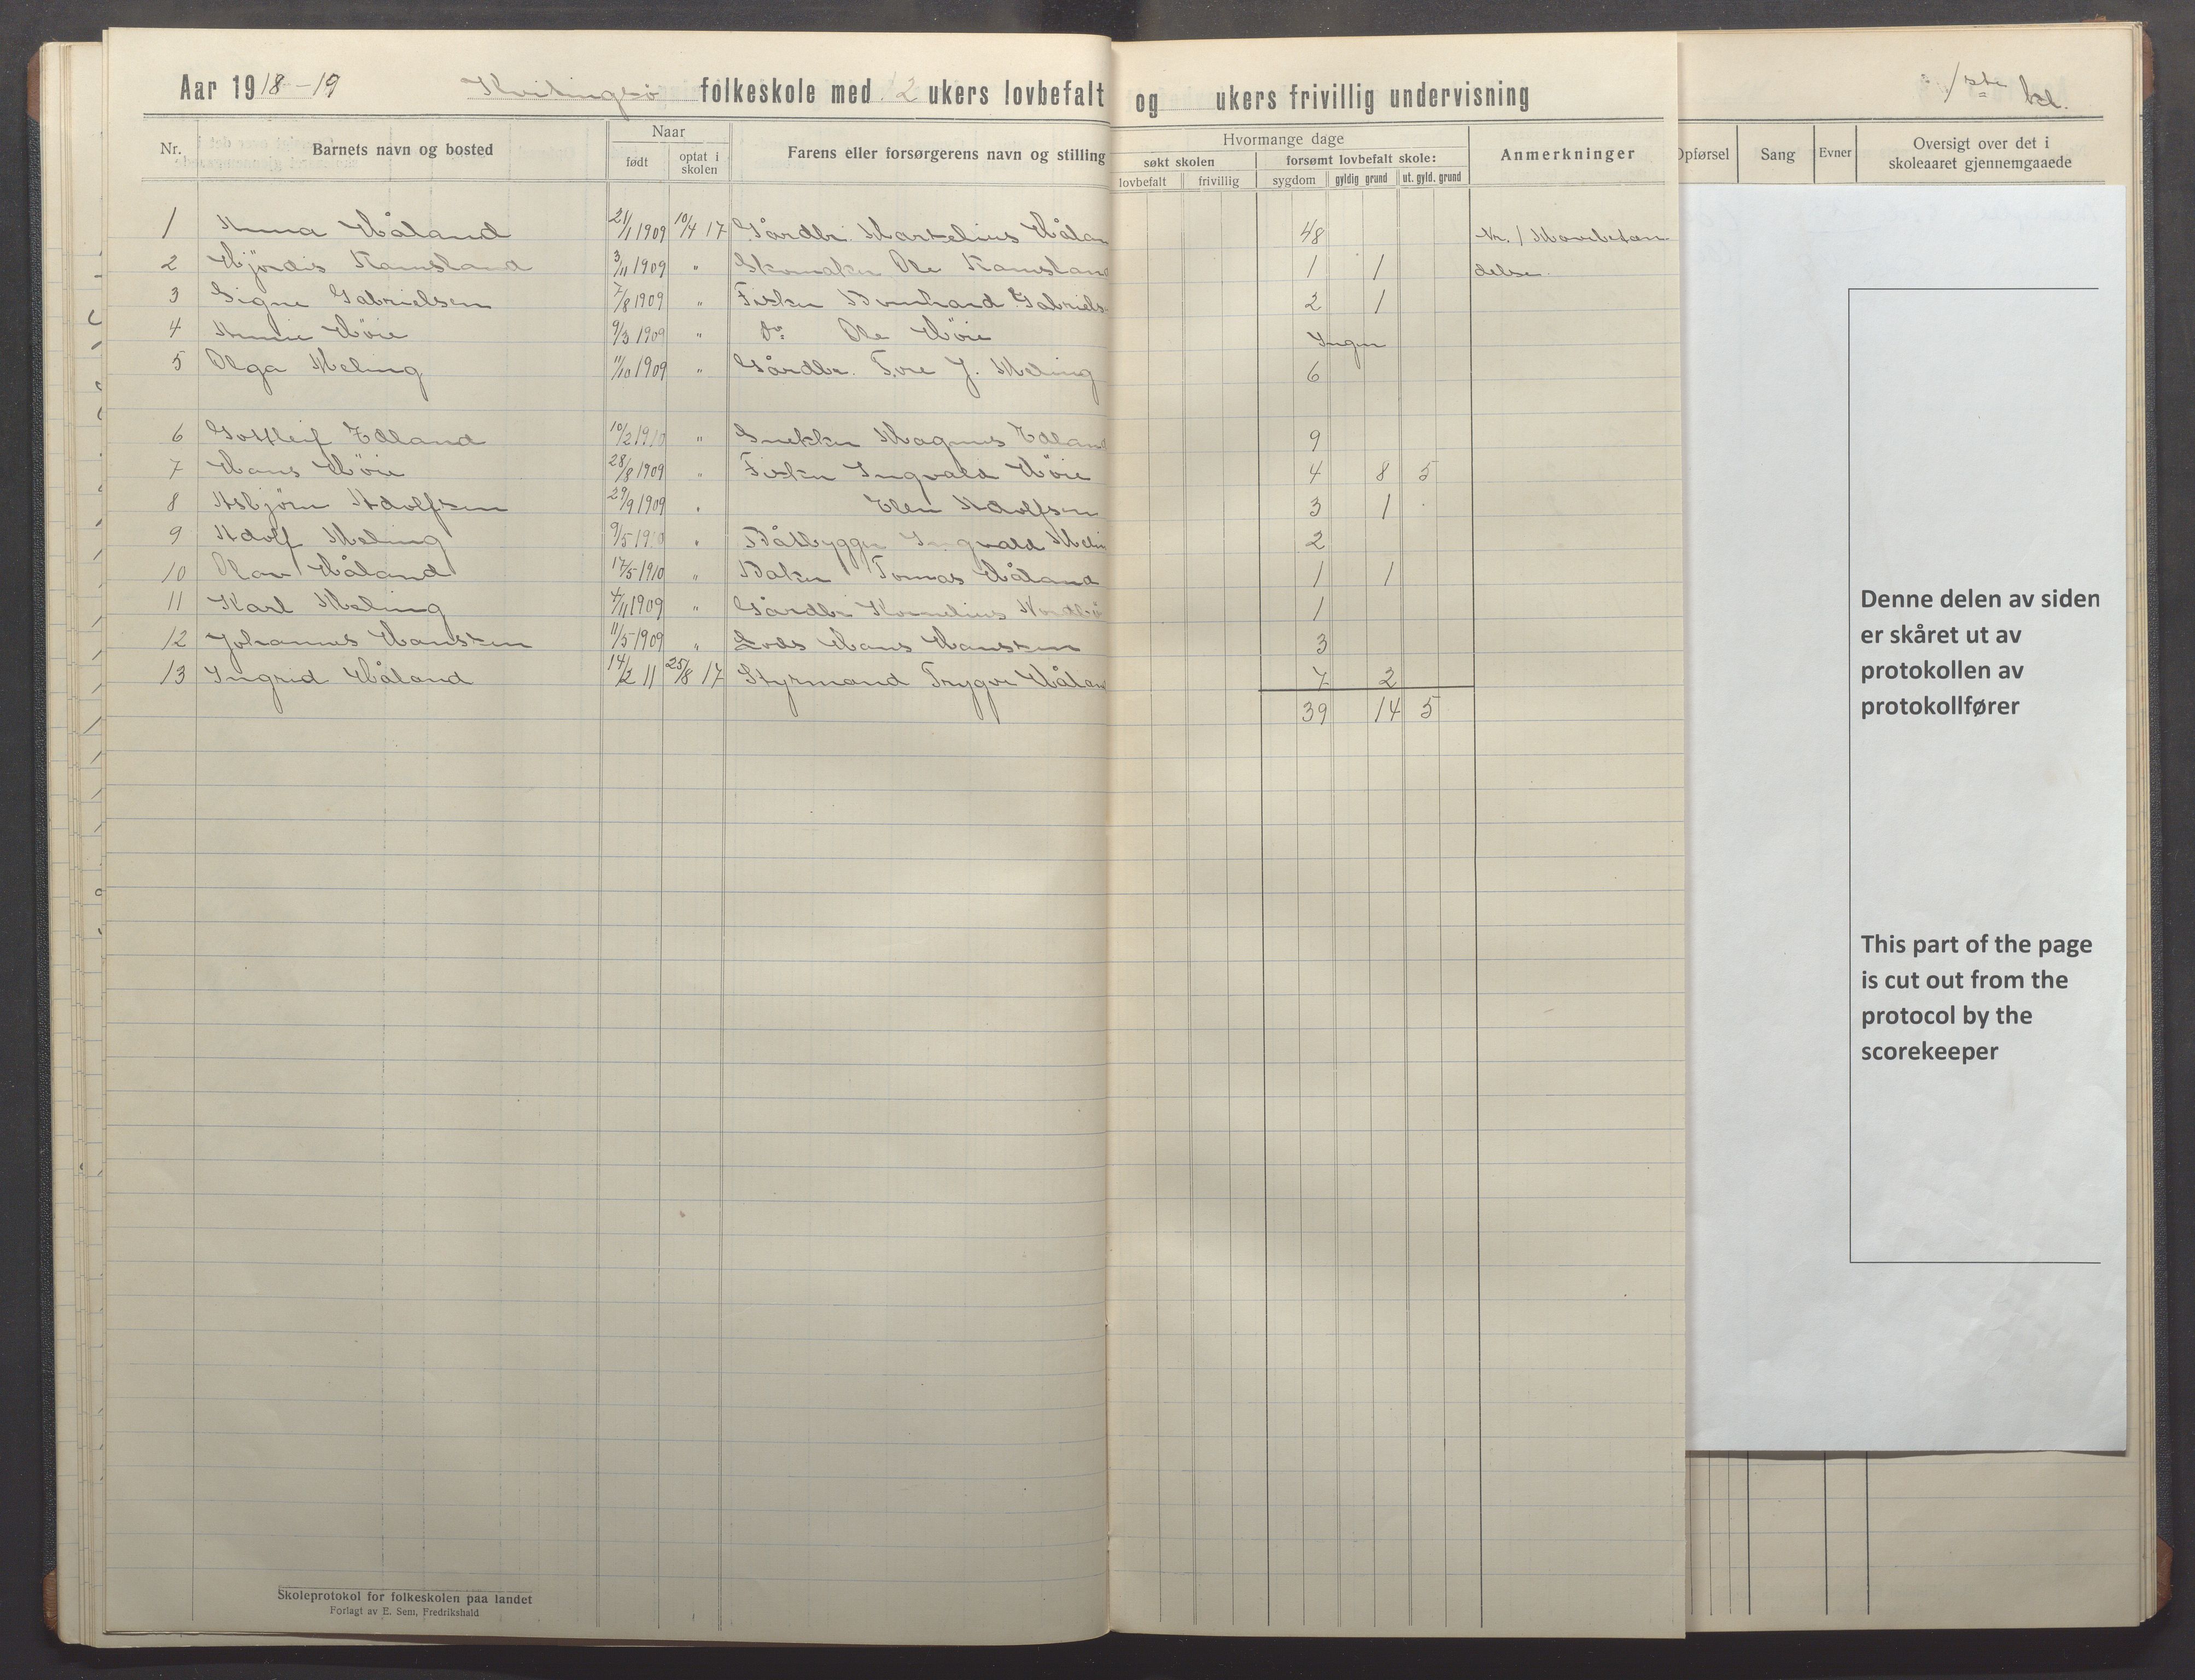 Aar 1918-19 Kvitingsø folkeskole med 12 ukers lovbefalt og ukers frivillig undervisning 1ste kl.
Nr. Barnets navn og bosted Naar født optat i skolen Farens eller forsørgerens navn og stilling Hvormange dage søkt skolen lovbefalt frivillig forsømt lovbefalt skole: sygdom gyldig grund ut. gyld. grund Anmerkninger Opførsel Sang Evner Oversigt over det i skoleaaret gjennemgaaede
1 Anna Håland 21/1 1909 10/4 17 Gårdbr. Martelius Hålan 48 Nr. 1
2 Hjördis Ramsland 3/11 1909 " Skomaker Ole Ramsland 1 1 delse.
3 Signe Gabrielsen 7/8 1909 " Fisker Bernhard Gabriels 2 1
4 Annie Höie 9/3 1909 " Do Ole Höie Ingen
5 Olga Meling 11/10 1909 " Gårdbr. Tore J. Meling 6
6 Gottleif Edland 10/2 1910 " Snekker Magnus Edland 9
7 Hans Höie 28/8 1909 " Fisker Ingvald Höie 4 8 5
8 Asbjörn Adolfsen 29/9 1909 " Elen Adolfsen 3 1
9 Adolf Meling 9/5 1910 " Båtbygger Ingvald Melin 2
10 Olav Håland 17/5 1910 " Baker Tomas Håland 1 1
11 Karl Meling 4/11 1909 " Gårdbr. Kornelius Nordbö 1
12 Johannes Hansen 11/5 1909 " Lods Hans Hansen 3
13 Ingrid Håland 14/2 11 25/8 17 Styrmand Trygve Hålan 7 2
39 14 5
Denne delen av siden
er skåret ut av
protokollen av
protokollfører
This part of the page
is cut out from the
protocol by the
scorekeeper
Skoleprotokol for folkeskolen paa landet
Forlagt av E. Sem, Fredrikshald